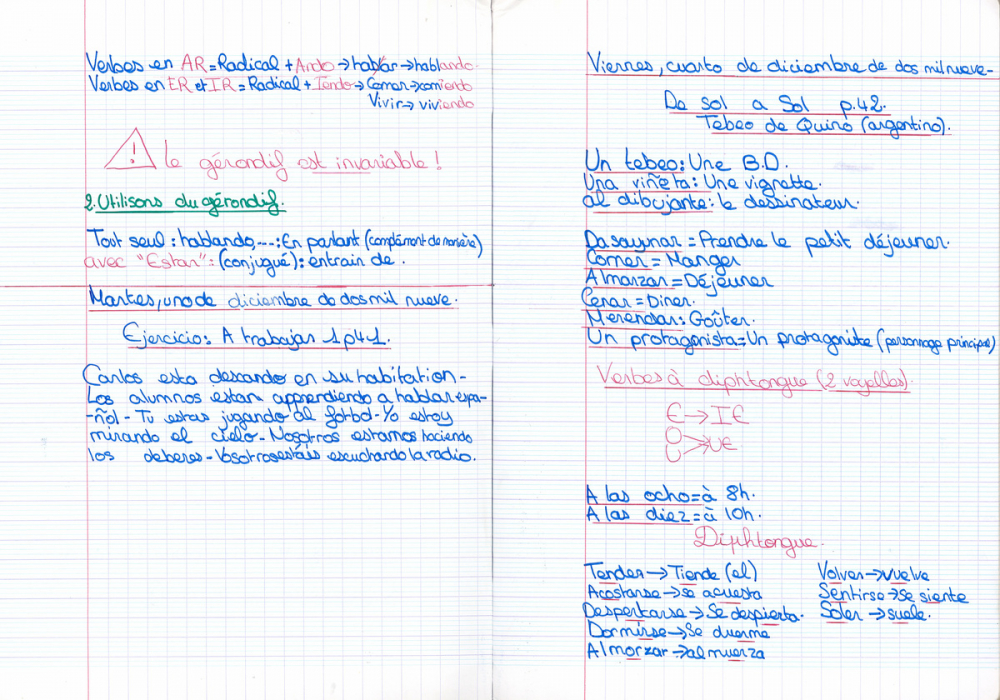 Verbes en AR = Radical + Ando → hablar → hablando.
Verbes en ER et IR = Radical + Iendo → Comer → comiendo
Vivir → viviendo
! le gérondif est invariable !
2. Utilisons du gérondif.
Tout seul : hablando, ... : En parlant (complément de manière)
avec "Estar" : (conjugué) : entrain de .
Martes, uno de diciembre de dos mil nueve.
Ejercicio : A trabajar 1 p41.
Carlos esta descando en su habitation -
Los alumnos estan apprendiendo a hablar espa-
-ñol - Tu estas jugando al fotbol - Yo estoy
mirando el cielo - Nosotros estamos haciendo
los deberes - Vosotros estáis escuchando la radio.
Viernes, cuarto de diciembre de dos mil nueve -
De sol a Sol p.42.
Tebeo de Quino (argentino).
Un tebeo : Une B.D.
Una viñeta : Une vignette.
al dibujante : le dessinateur.
Desaynar = Prendre le petit déjeuner.
Comer = Manger
Almarzar = Déjeuner
Cenar = Diner.
Merendar : Goûter.
Un protagonista = Un protagoniste (personnage principal)
Verbes à diphtongue (2 voyelles).
E → IE
O → UE
U
A las ocho = à 8h.
A las diez = à 10h.
Diphtongue.
Tender → Tiende (el)
Acostarse → se acuesta
Despertarse → Se despierta.
Dormirse → Se duerme
Almorzar → almuerza
Volver → vuelve
Sentirse → Se siente
Soler → suele.